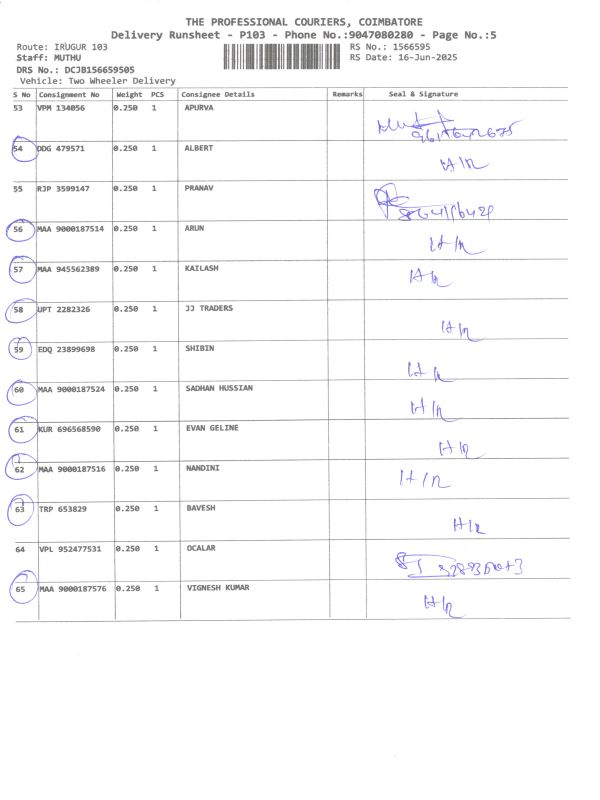 THE PROFESSIONAL COURIERS, COIMBATORE
Delivery Runsheet - P103 - Phone No.:9047080280 - Page No.:5
Route: IRUGUR 103 RS No.: 1566595
Staff: MUTHU RS Date: 16-Jun-2025
DRS No.: DCJB156659505
Vehicle: Two Wheeler Delivery
S No Consignment No Weight PCS Consignee Details Remarks Seal & Signature
53 VPM 134056 0.250 1 APURVA
54 DDG 479571 0.250 1 ALBERT H/n
55 RJP 3599147 0.250 1 PRANAV
56 MAA 9000187514 0.250 1 ARUN H/n
57 MAA 945562389 0.250 1 KAILASH H/n
58 UPT 2282326 0.250 1 JJ TRADERS H/n
59 EDQ 23899698 0.250 1 SHIBIN H/n
60 MAA 9000187524 0.250 1 SADHAN HUSSIAN H/n
61 KUR 696568590 0.250 1 EVAN GELINE H/n
62 MAA 9000187516 0.250 1 NANDINI H/n
63 TRP 653829 0.250 1 BAVESH H/n
64 VPL 952477531 0.250 1 OCALAR
65 MAA 9000187576 0.250 1 VIGNESH KUMAR H/n